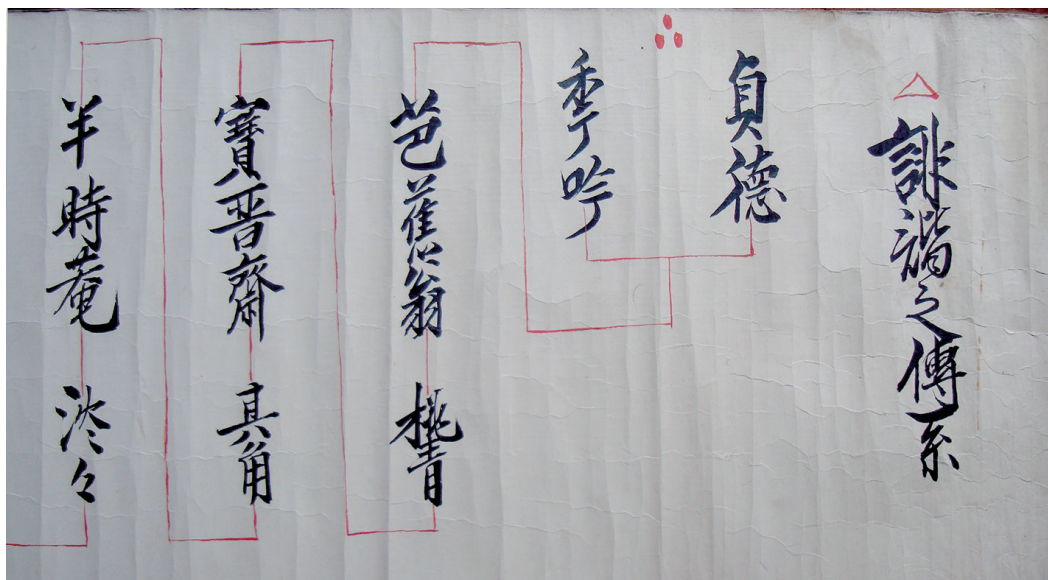 誹諧之傳系
貞德
季吟
芭蕉翁 桃青
寳晋齋 其角
半時菴 淡々